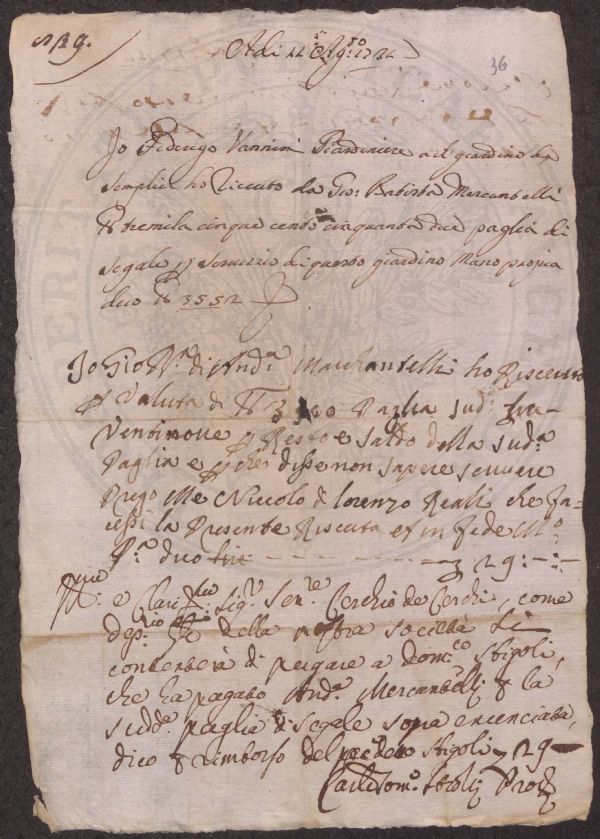 36
Adi 11 Ag:to
Io Federigo Vannini Giardiniere del giardino de
semplici ho riceuto da Gio: Batista Mercantelli
tremila cinque cento cinquanta due paglia di
segale p servizio di questo giardino Mano propria
dico 3552
Io Gio B.a di And.a Marchantelli ho Riceuto
p Valuta di Paglia Sud.a lire
Ventinove p Resto e saldo della sud.a
Paglia e p che disse non sapere scrivere
Prego Me Niccolo di Lorenzo Reali che fa-
cessi la Presente Riceuta et in fede M.o
P.a dico 29:-:-
e Clari.mo Sig.r Sen.re Cerchio de Cerchi, come
dep.rio della nostra società si
contenterà di pagare a Dom.co Stigoli,
che ha pagato And.a Mercantelli la
sudd.a paglia di segale sopra enunciata,
dico rimborso del Stigoli 29